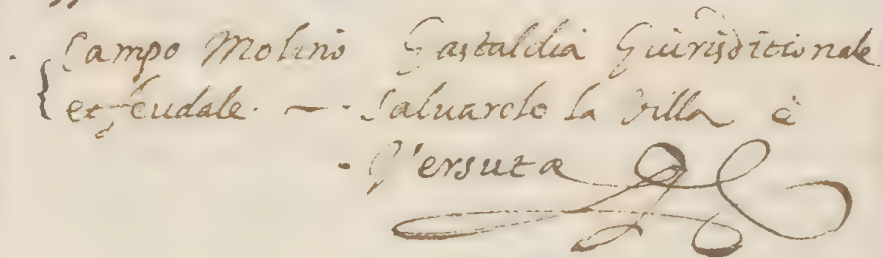 Campo Molino Gastaldia Giurisditionale
et feudale. — Saluarolo la Villa è
Versuta